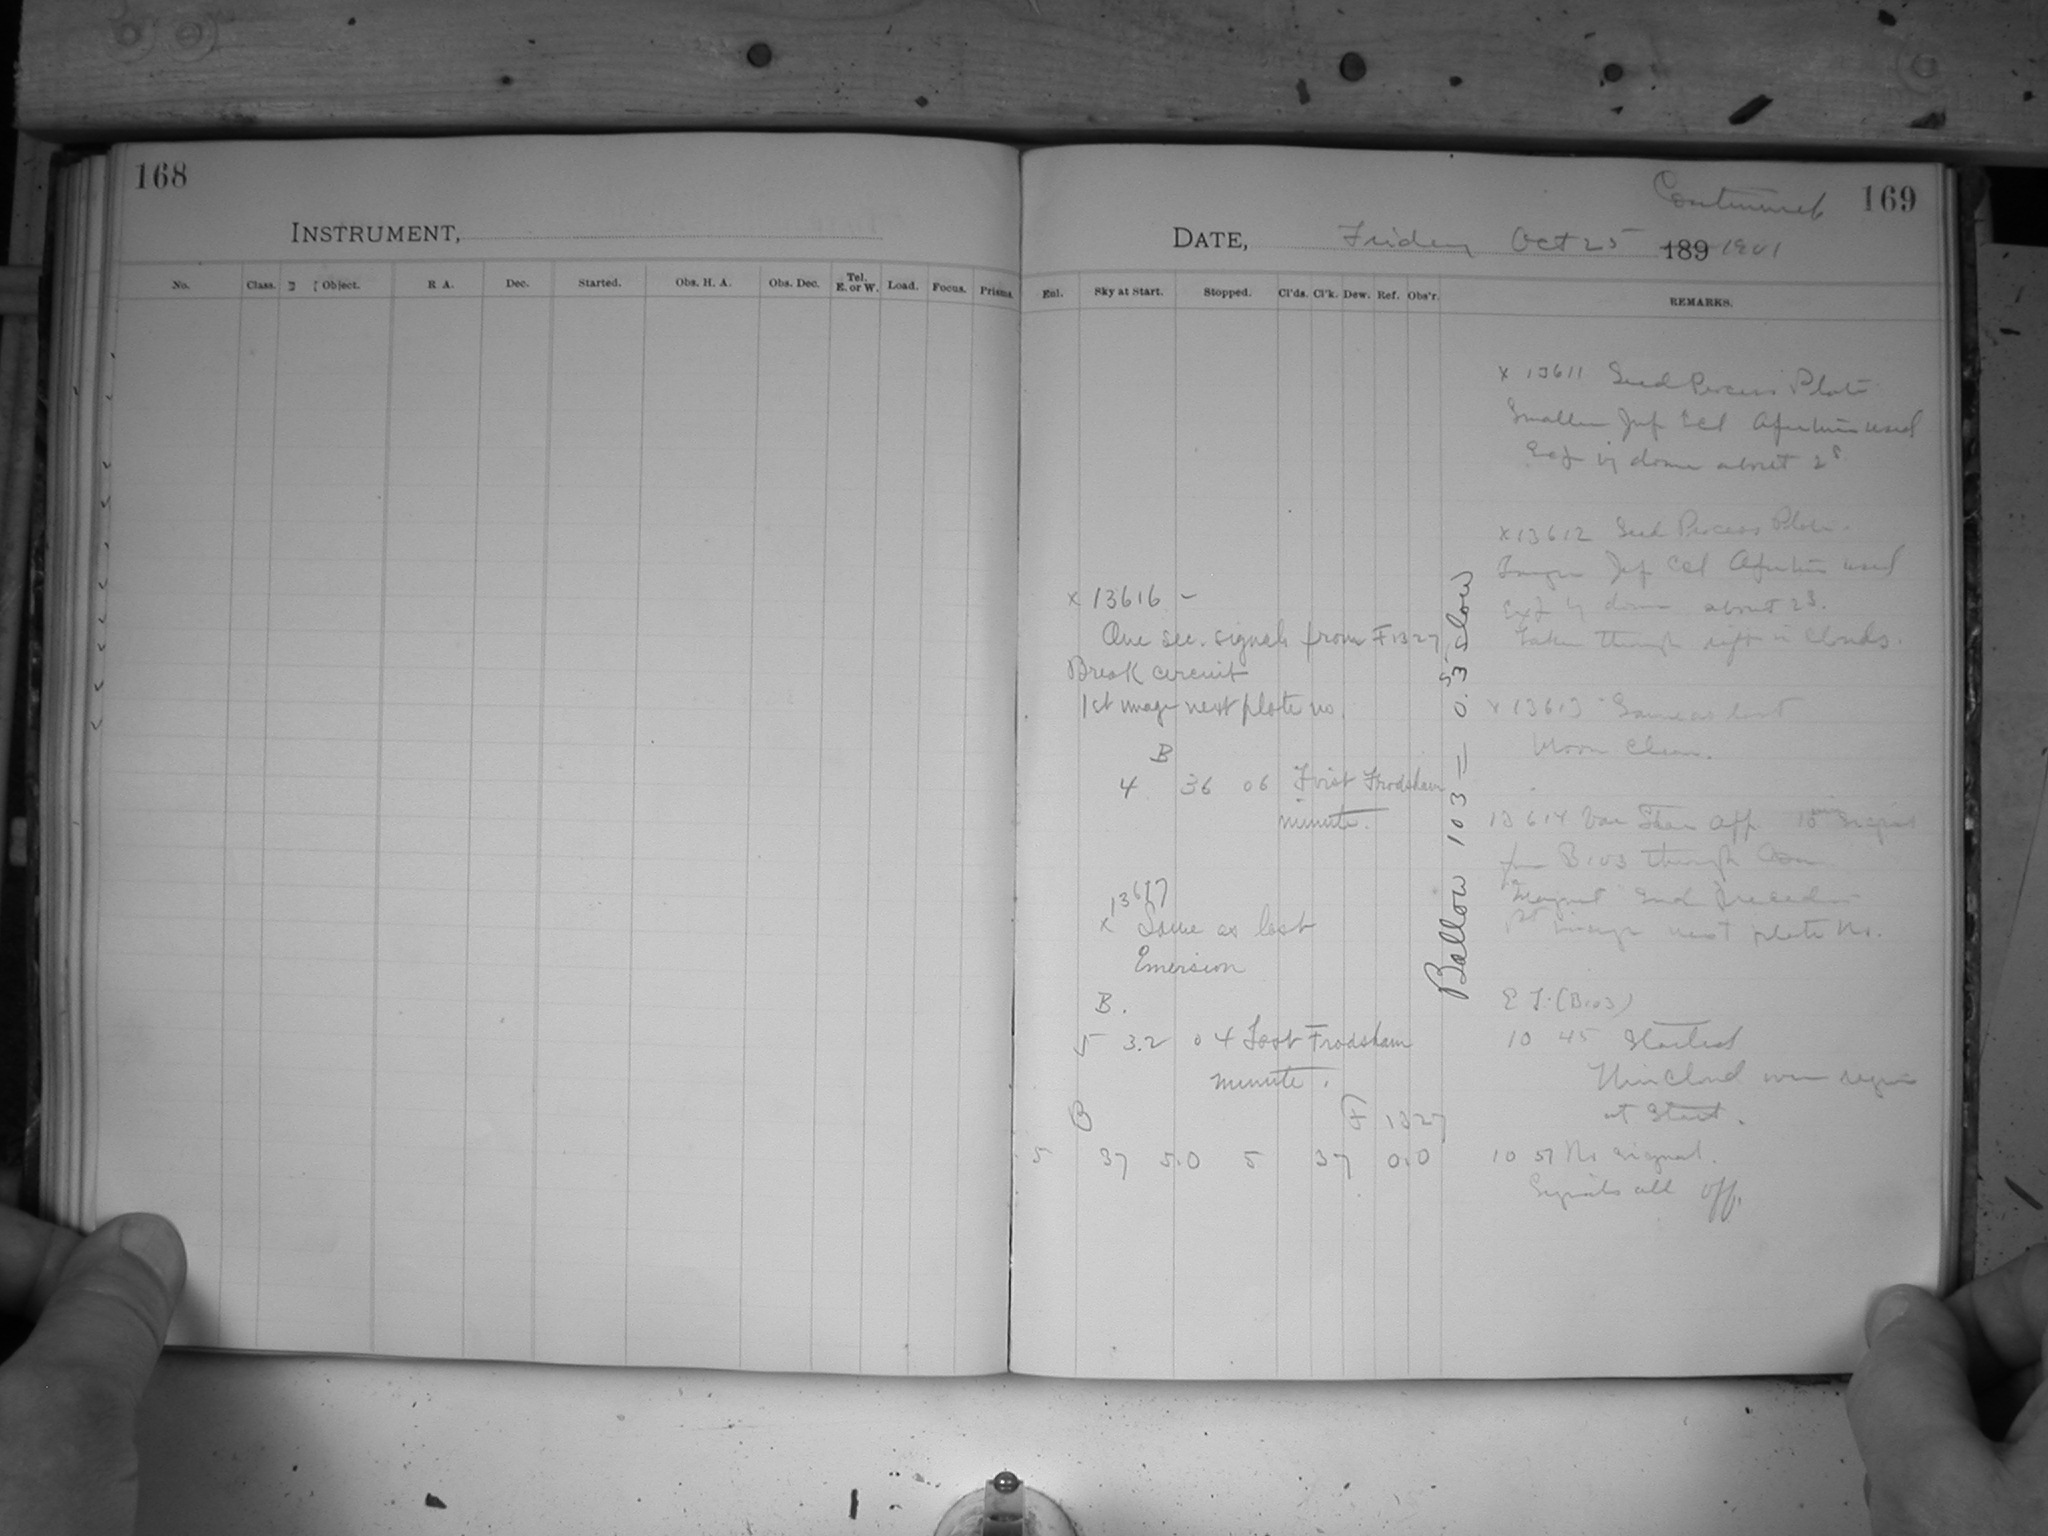 168
INSTRUMENT,
No. Class. Object. R A. Dec. Started. Obs. H. A. Obs. Dec. Tel. E. or W. Load. Focus. Prisms
Continued 169
DATE, Friday Oct 25 189 1901
Enl. Sky at Start. Stopped. Cl'ds. Cl'k. Dew. Ref. Obs'r. REMARKS.
x 13616 -
One sec. signals from F1327
Break circuit
1st image next plate no.
B
4 36 06 First Frodsham
minute.
13617
x Same as last
Emersion
B.
5 32 04 Last Frodsham
minute.
B F 1327
5 37 5.0 5 37 0.0
Ballow 103 = 0.5 3 slow
x 13611 Seed Process Plate
Smaller Jup Ecl Aperture used
Exp by dome about 2s
x 13612 Seed Process Plate.
Larger Jup Ecl Aperture used
Exp by dome about 2s.
Taken through rift in clouds.
x 13613 Same as last
Moon clear.
13614 Var Star App. 10 min
B103 through
Magnet End preceding
1st image next plate No.
E T. (B103)
10 45 Started
Thin Cloud over region
at Start.
10 57 No signal.
Signals all off.